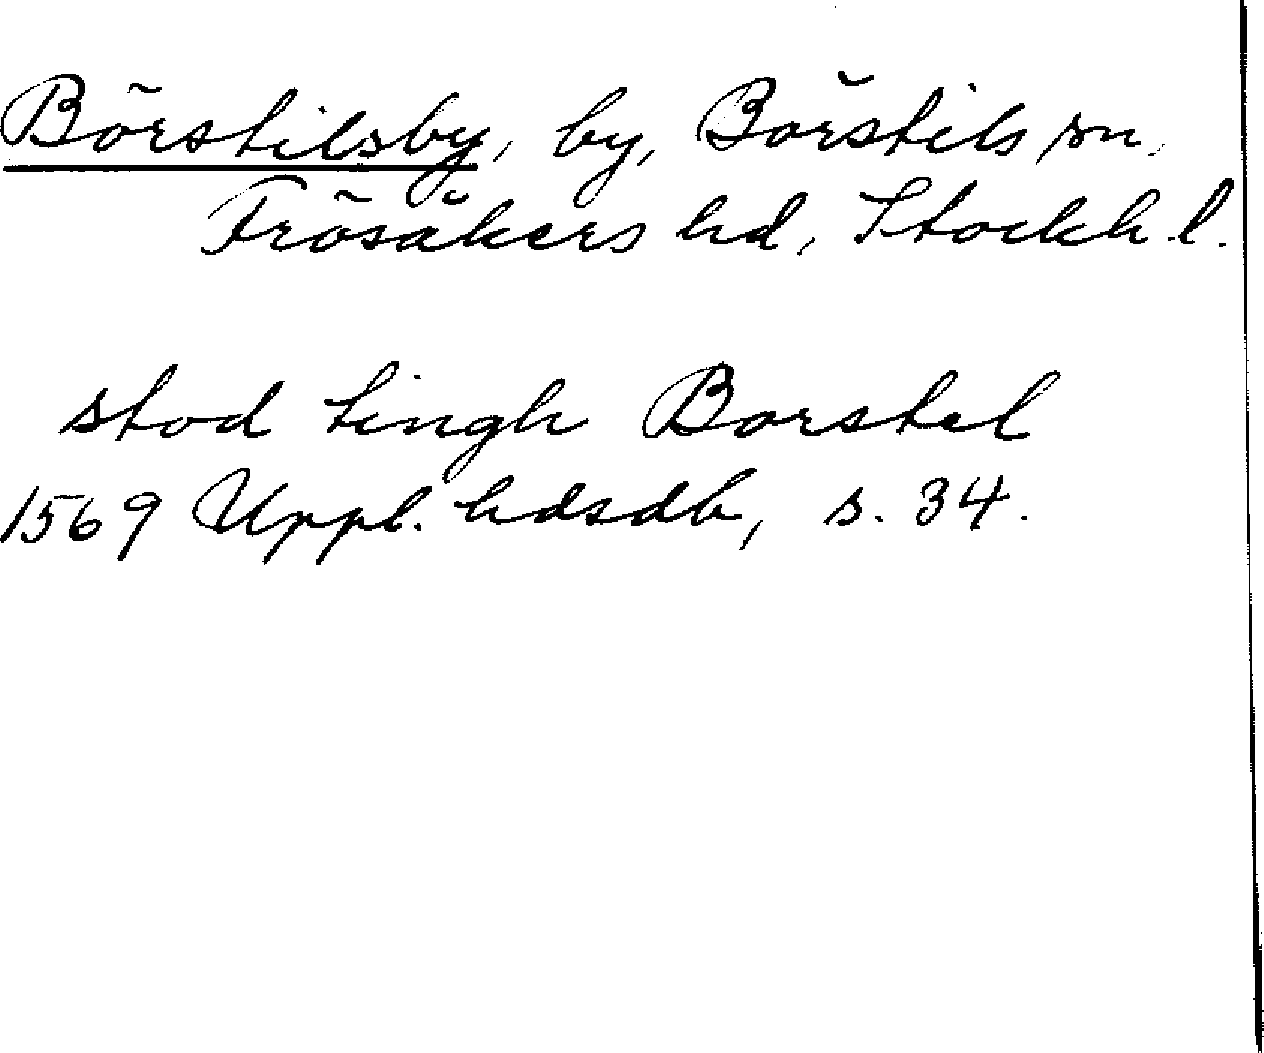 Börstilsby, by, Börstils sn,
Frösåkers hd, Stockh. l.
stod tingh Borstel
1569 Uppl. hdsdb, s. 34.